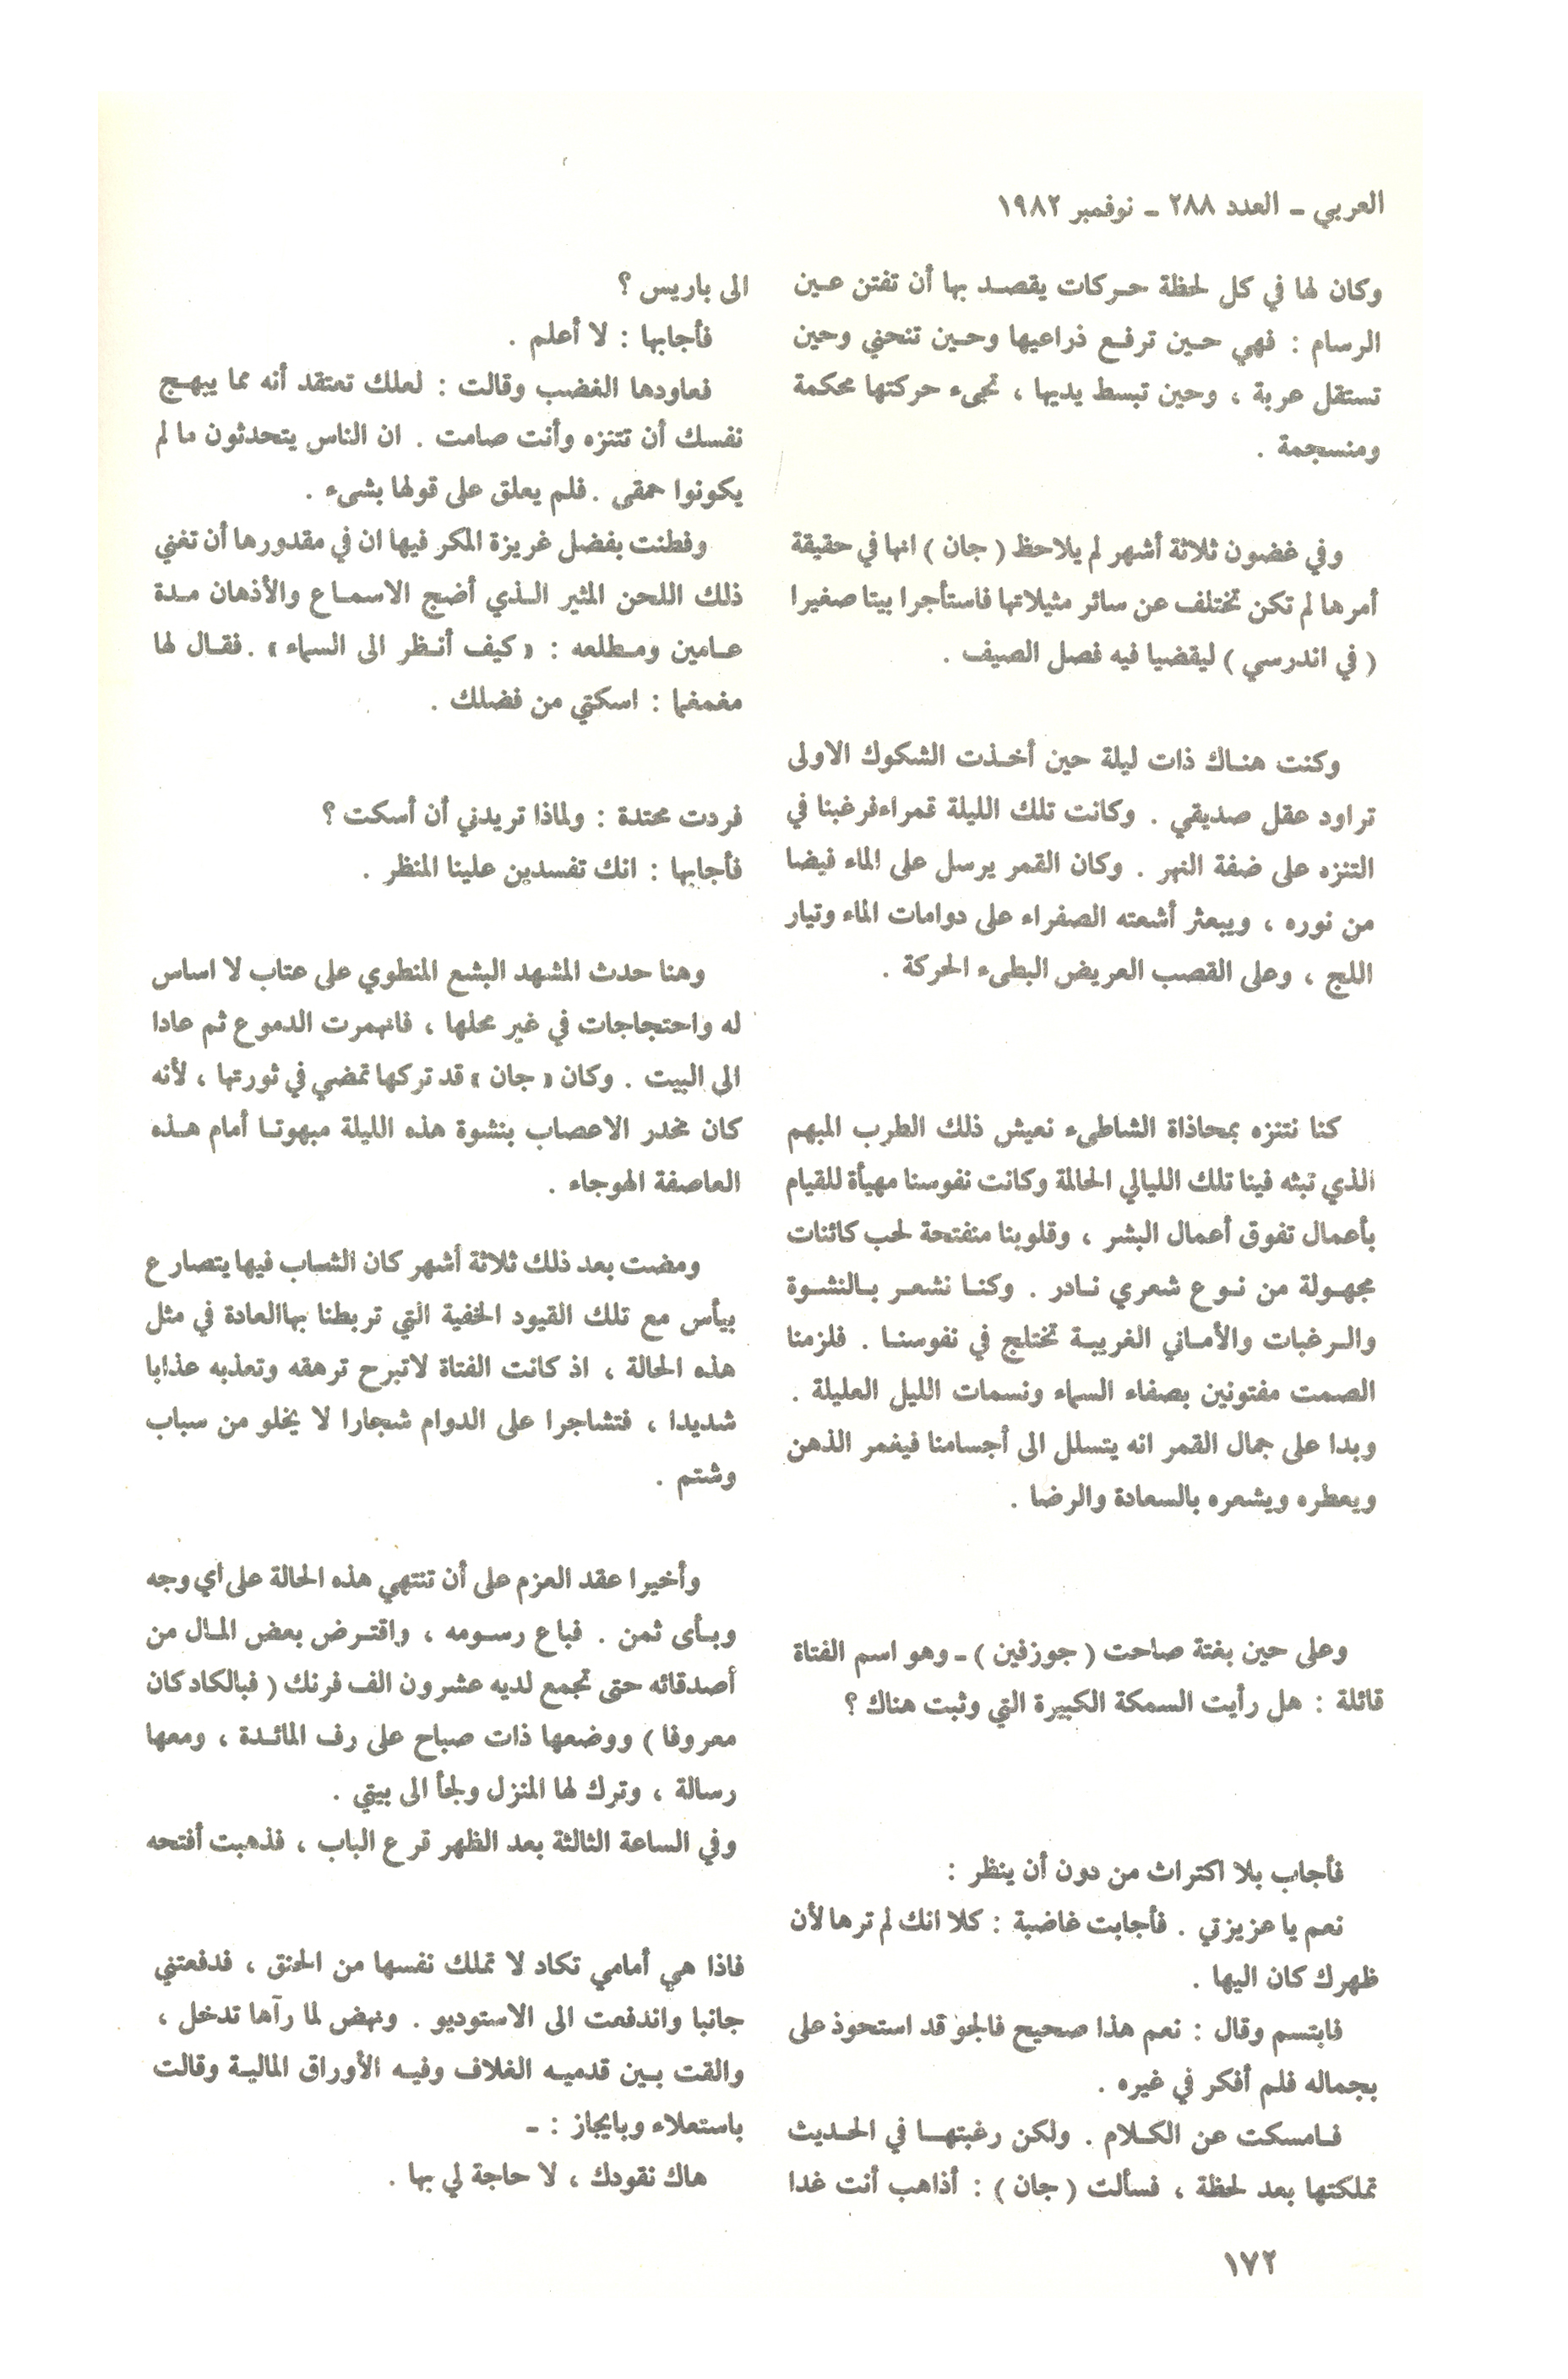 العربي ـ العدد ٢٨٨ ـ نوفمبر ١٩٨٢
وكان لها في كل لحظة حركات يقصد بها أن تفتن عين
الرسام : فهي حين ترفع ذراعيها وحين تنحني وحين
تستقل عربة ، وحين تبسط يديها ، تجىء حركتها محكمة
ومنسجمة .
وفي غضون ثلاثة أشهر لم يلاحظ ( جان ) انها في حقيقة
أمرها لم تكن تختلف عن سائر مثيلاتها فاستأجرا بيتا صغيرا
( في اندرسي ) ليقضيا فيه فصل الصيف .
وكنت هناك ذات ليلة حين أخذت الشكوك الاولى
تراود عقل صديقي . وكانت تلك الليلة قمراء فرغبنا في
التنزه على ضفة النهر . وكان القمر يرسل على الماء فيضا
من نوره ، ويبعثر أشعته الصفراء على دوامات الماء وتيار
اللج ، وعلى القصب العريض البطىء الحركة .
كنا نتنزه بمحاذاة الشاطىء نعيش ذلك الطرب المبهم
الذي تبثه فينا تلك الليالي الحالمة وكانت نفوسنا مهيأة للقيام
بأعمال تفوق أعمال البشر ، وقلوبنا منفتحة لحب كائنات
مجهولة من نوع شعري نادر . وكنا نشعر بالنشوة
والرغبات والأماني الغريبة تختلج في نفوسنا . فلزمنا
الصمت مفتونين بصفاء السماء ونسمات الليل العليلة .
وبدا على جمال القمر انه يتسلل الى أجسامنا فيغمر الذهن
ويعطره ويشعره بالسعادة والرضا .
وعلى حين بغتة صاحت ( جوزفين ) ـ وهو اسم الفتاة
قائلة : هل رأيت السمكة الكبيرة التي وثبت هناك ؟
فأجاب بلا اكتراث من دون أن ينظر :
نعم يا عزيزتي . فأجابت غاضبة : كلا انك لم ترها لأن
ظهرك كان اليها .
فابتسم وقال : نعم هذا صحيح فالجو قد استحوذ على
بجماله فلم أفكر في غيره .
فامسكت عن الكلام . ولكن رغبتها في الحديث
تملكتها بعد لحظة ، فسألت ( جان ) : أذاهب أنت غدا
الى باريس ؟
فأجابها : لا أعلم .
فعاودها الغضب وقالت : لعلك تعتقد أنه مما يبهج
نفسك أن تتنزه وأنت صامت . ان الناس يتحدثون ما لم
يكونوا حمقى . فلم يعلق على قولها بشىء .
وفطنت بفضل غريزة المكر فيها ان في مقدورها أن تغني
ذلك اللحن المثير الذي أضج الاسماع والأذهان مدة
عامين ومطلعه : « كيف أنظر الى السماء » . فقال لها
مغمغما : اسكتي من فضلك .
فردت محتدة : ولماذا تريدني أن أسكت ؟
فأجابها : انك تفسدين علينا المنظر .
وهنا حدث المشهد البشع المنطوي على عتاب لا اساس
له واحتجاجات في غير محلها ، فانهمرت الدموع ثم عادا
الى البيت . وكان « جان » قد تركها تمضي في ثورتها ، لأنه
كان مخدر الاعصاب بنشوة هذه الليلة مبهوتا أمام هذه
العاصفة الهوجاء .
ومضت بعد ذلك ثلاثة أشهر كان الشباب فيها يتصارع
بيأس مع تلك القيود الخفية التي تربطنا بها العادة في مثل
هذه الحالة ، اذ كانت الفتاة لاتبرح ترهقه وتعذبه عذابا
شديدا ، فتشاجرا على الدوام شجارا لا يخلو من سباب
وشتم .
وأخيرا عقد العزم على أن تنتهي هذه الحالة على أي وجه
وبأى ثمن . فباع رسومه ، واقترض بعض المال من
أصدقائه حتى تجمع لديه عشرون الف فرنك ( فبالكاد كان
معروفا ) ووضعها ذات صباح على رف المائدة ، ومعها
رسالة ، وترك لها المنزل ولجأ الى بيتي .
وفي الساعة الثالثة بعد الظهر قرع الباب ، فذهبت أفتحه
فاذا هي أمامي تكاد لا تملك نفسها من الحنق ، فدفعتني
جانبا واندفعت الى الاستوديو . ونهض لما رآها تدخل ،
والقت بين قدميه الغلاف وفيه الأوراق المالية وقالت
باستعلاء وبايجاز : ـ
هاك نقودك ، لا حاجة لي بها .
١٧٢